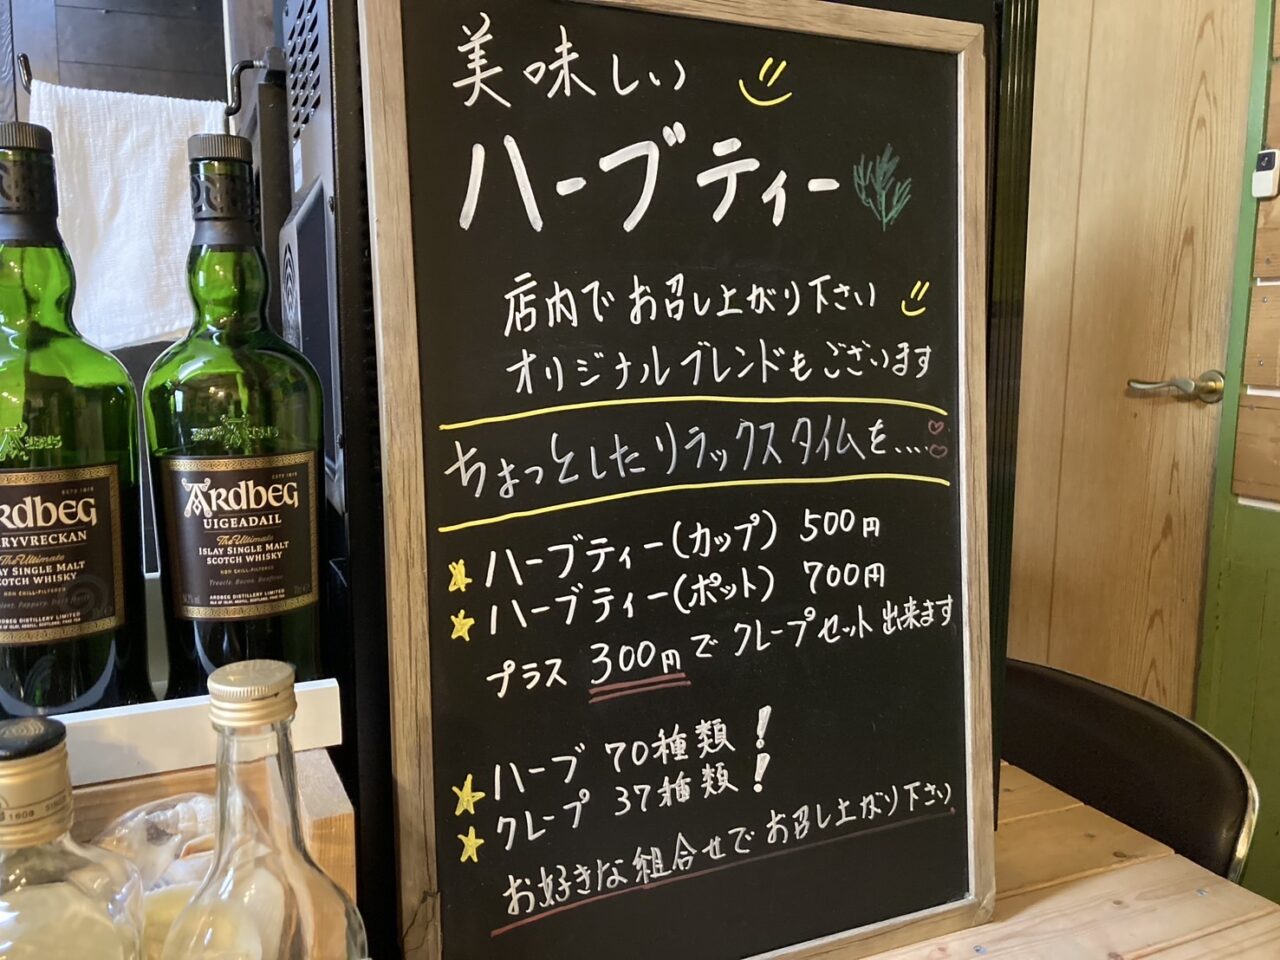 美味しい
ハーブティー
店内でお召し上がり下さい
オリジナルブレンドもございます
ちょっとしたリラックスタイムを....
ハーブティー(カップ) 500円
ハーブティー(ポット) 700円
プラス 300円でクレープセット出来ます
ハーブ 70種類!
クレープ 37種類!
お好きな組合せでお召し上がり下さい
ARDBEG
UIGEADAIL
The Ultimate
ISLAY SINGLE MALT
SCOTCH WHISKY
NON CHILL-FILTERED
ARDBEG DISTILLERY LIMITED
RDBEG
RYVRECKAN
The Ultimate
AY SINGLE MALT
SCOTCH WHISKY
NON CHILL-FILTERED
RDBEG DISTILLERY LIMITED
1608